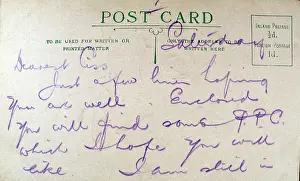 POST CARD
TO BE USED FOR WRITTEN OR
PRINTED MATTER
WRITTEN OR
INLAND POSTAGE
½d.
FOREIGN POSTAGE
1d.
Saturday
Dearest Ciss
Just a few lines hoping
you are well Enclosed
You will find some P.P.C.
which I hope you will
like I am still in